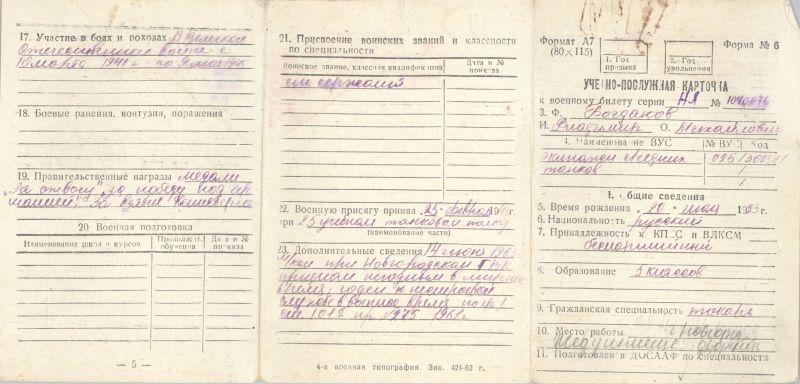 17. Участие в боях и походах В Великой
Отечественной войне с
10 марта 1941 г. по 9 мая 1945
18. Боевые ранения, контузии, поражения
19. Правительственные награды медали
"За отвагу", "за победу над гер-
манией", За взятие Кенигсберга
20 Военная подготовка
Наименование школ и курсов
Продолжит. обучения
Дата и № приказа
— 5 —
21. Присвоение воинских званий и классности
по специальности
Воинское звание, классная квалификация
Дата и № приказа
ст сержант
22. Военную присягу принял 23 февраля 194 г.
при 25 учебном танковом полку
(наименование части)
23. Дополнительные сведения 14 июня 1963
при Новгородском ГВК
признан негодным в мирное
время, годен к нестроевой
службе в военное время по гр. 1
ст. 101 пр. 1961 г.
4-я военная типография. Зак. 424-62 г.
Формат А7
(80×115)
1. Год призыва
2. Год увольнения
Форма № 6
УЧЕТНО-ПОСЛУЖНАЯ КАРТОЧКА
к военному билету серии НЛ №
3. Ф. Богданов
И. Владимир О. Михайлович
4. Наименование ВУС
№ ВУС
Код
экипажи средних
танков
1. Общие сведения
5. Время рождения 20 мая 1923
6. Национальность русский
7. Принадлежность к КПСС и ВЛКСМ
беспартийный
8. Образование 5 классов
9. Гражданская специальность токарь
10. Место работы г Новгород
11. Подготовлен в ДОСААФ по специальности